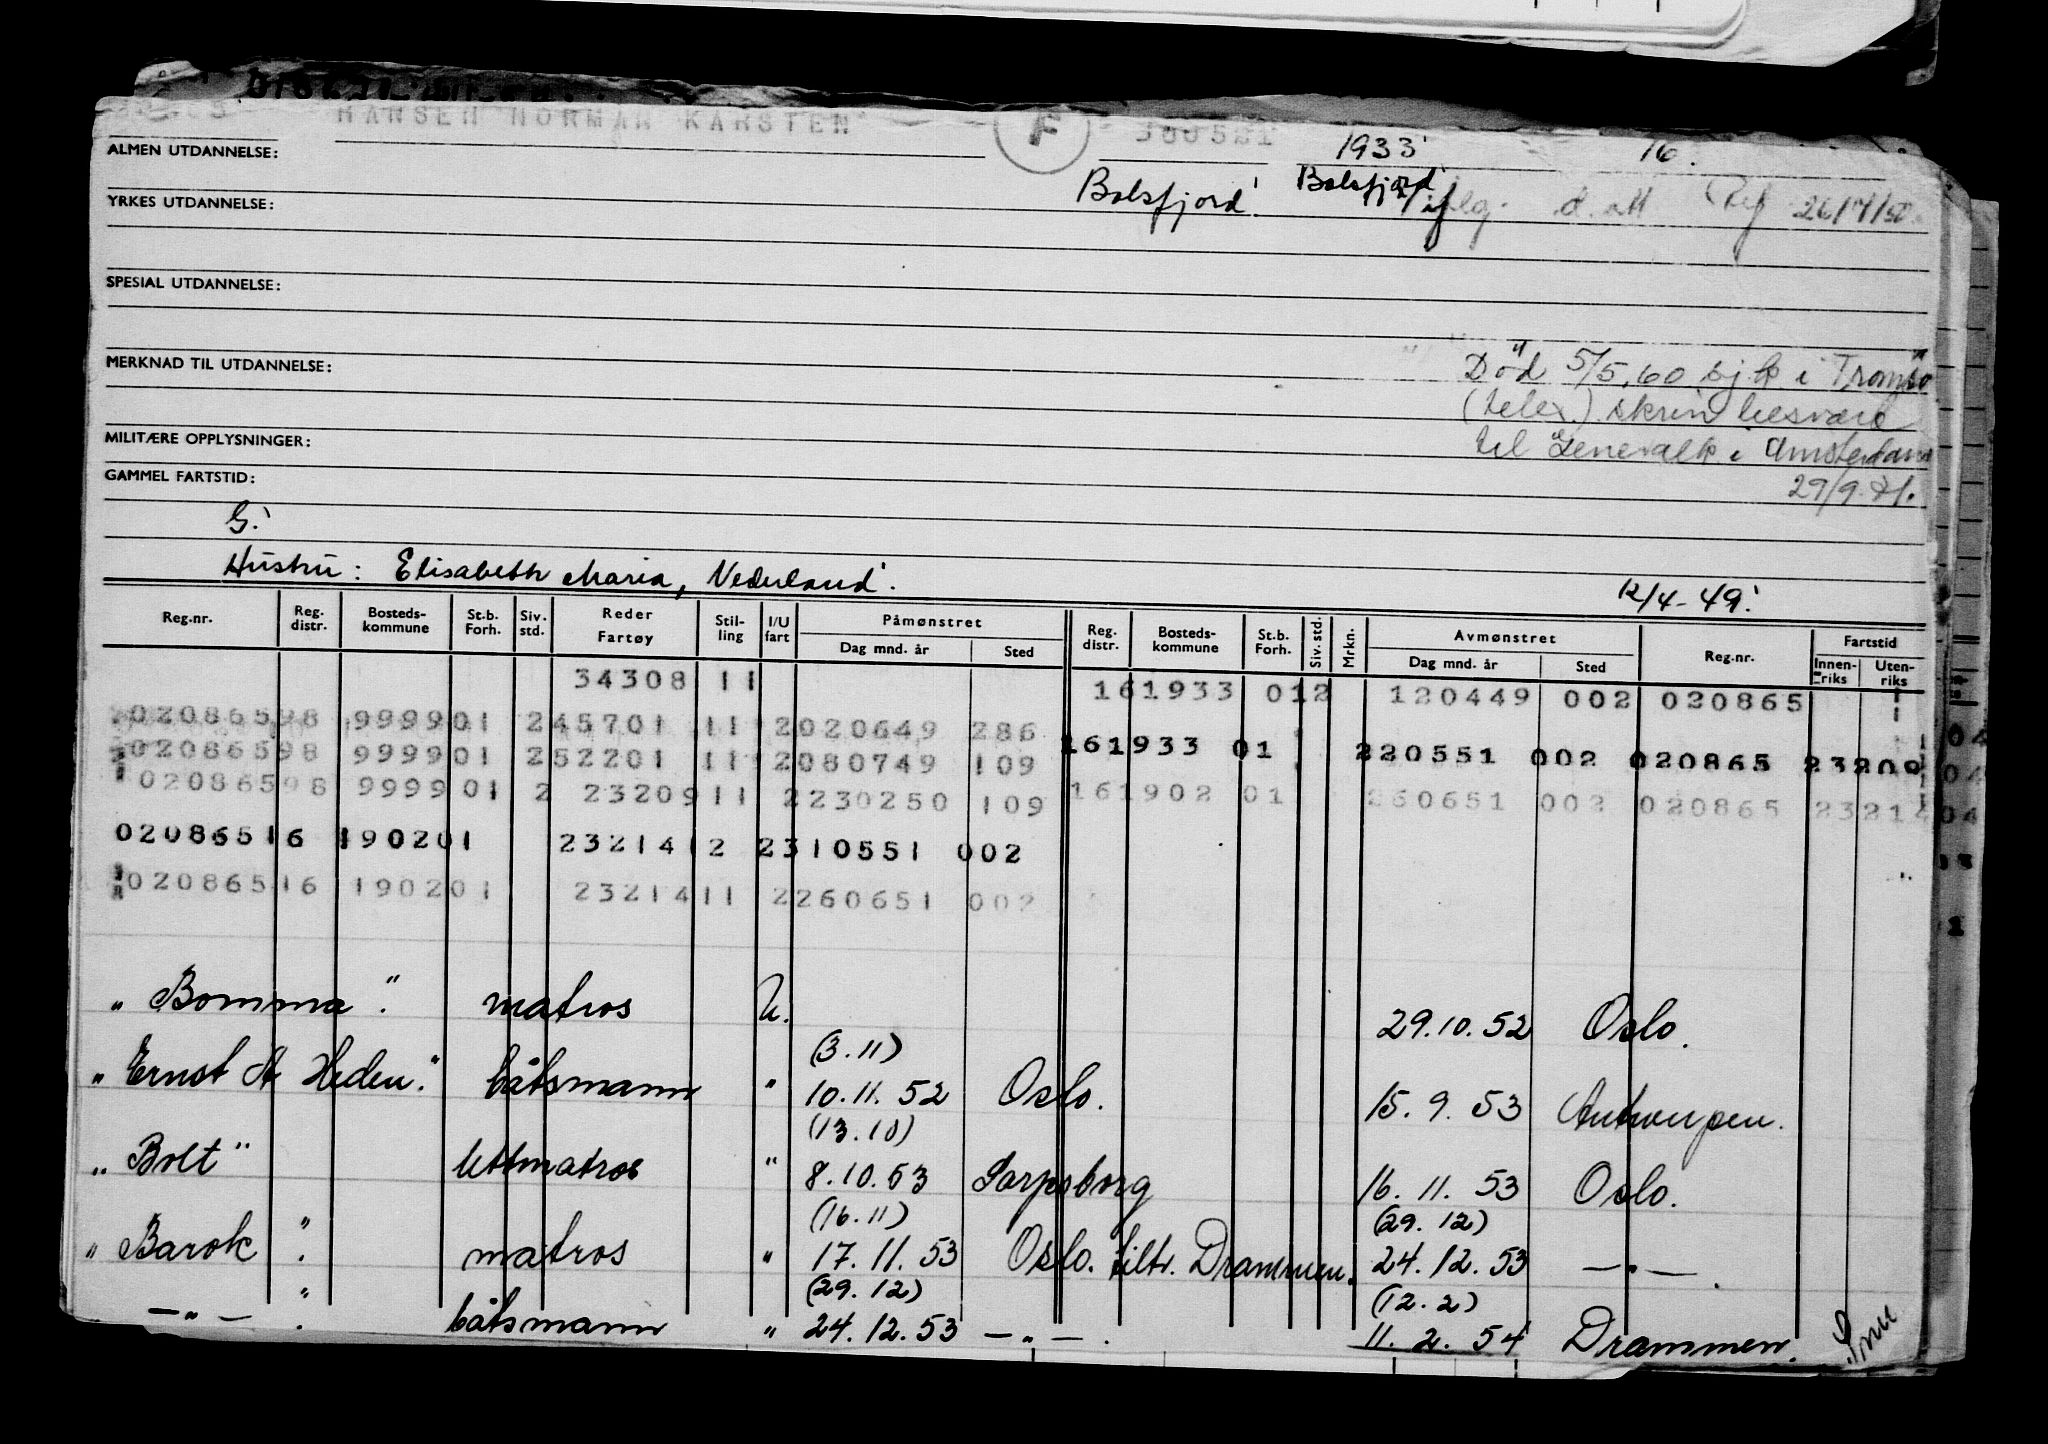 HANSEN NORMAN KARSTEN F 300521 1933 16.
ALMEN UTDANNELSE:
Balsfjord. Balsfjord iflg. d. att 26/7/50
YRKES UTDANNELSE:
SPESIAL UTDANNELSE:
MERKNAD TIL UTDANNELSE:
Død 5/5.60 sjh i Tromsø
(telex) skriv besvare
MILITÆRE OPPLYSNINGER: til Generalk i Amsterdam
GAMMEL FARTSTID: 29/9.71.
G.
Hustru: Elisabeth Maria, Nederland.
12/4-49.
Reg.nr. Reg. distr. Bosteds-kommune St.b. Forh. Siv. std. Reder Fartøy Stil-ling I/U fart Påmønstret Dag mnd. år Sted Reg. distr. Bosteds-kommune St.b. Forh. Siv. std. Mrkn. Avmønstret Dag mnd. år Sted Reg.nr. Fartstid Innen-riks Uten-riks
34308 11 161933 012 120449 002 020865
02086598 999901 245701 11 2020649 286
02086598 999901 252201 11 2080749 109 161933 01 220551 002 020865 23209
02086598 999901 2 23209 11 2230250 109 161902 01 260651 002 020865 23214
02086516 190201 23214 12 2310551 002
02086516 190201 23214 11 2260651 002
"Bomma". matros U. 29.10.52 Oslo.
(3.11)
"Ernst A Heden". båtsmann " 10.11.52 Oslo. 15.9.53 Antwerpen.
(13.10)
"Bolt" lettmatros " 8.10.53 Sarpsborg 16.11.53 Oslo.
(16.11) (29.12)
"Barok". matros " 17.11.53 Oslo. tiltr. Drammen. 24.12.53 —"—.
(29.12) (12.2)
—"—. båtsmann " 24.12.53 —"—. 11.2.54 Drammen.